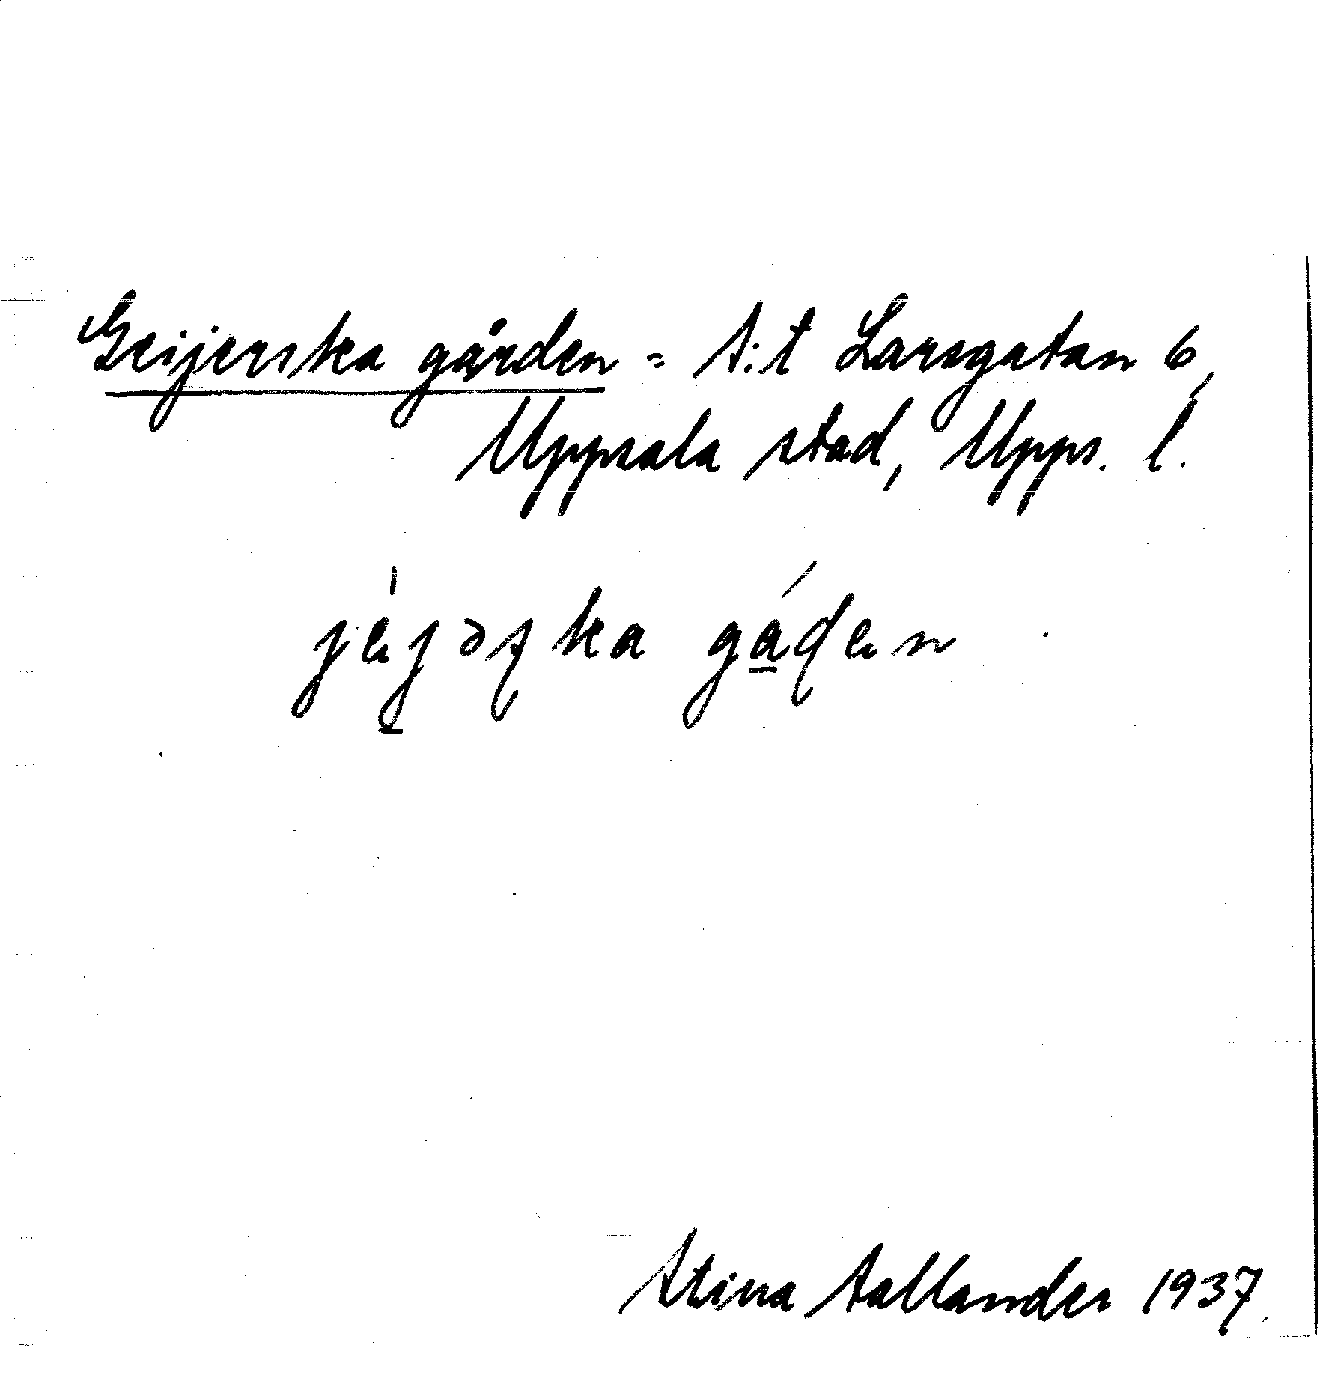 Geijerska gården = S:t Larsgatan 6,
Uppsala stad, Upps. l.
Stina Sallander 1937.